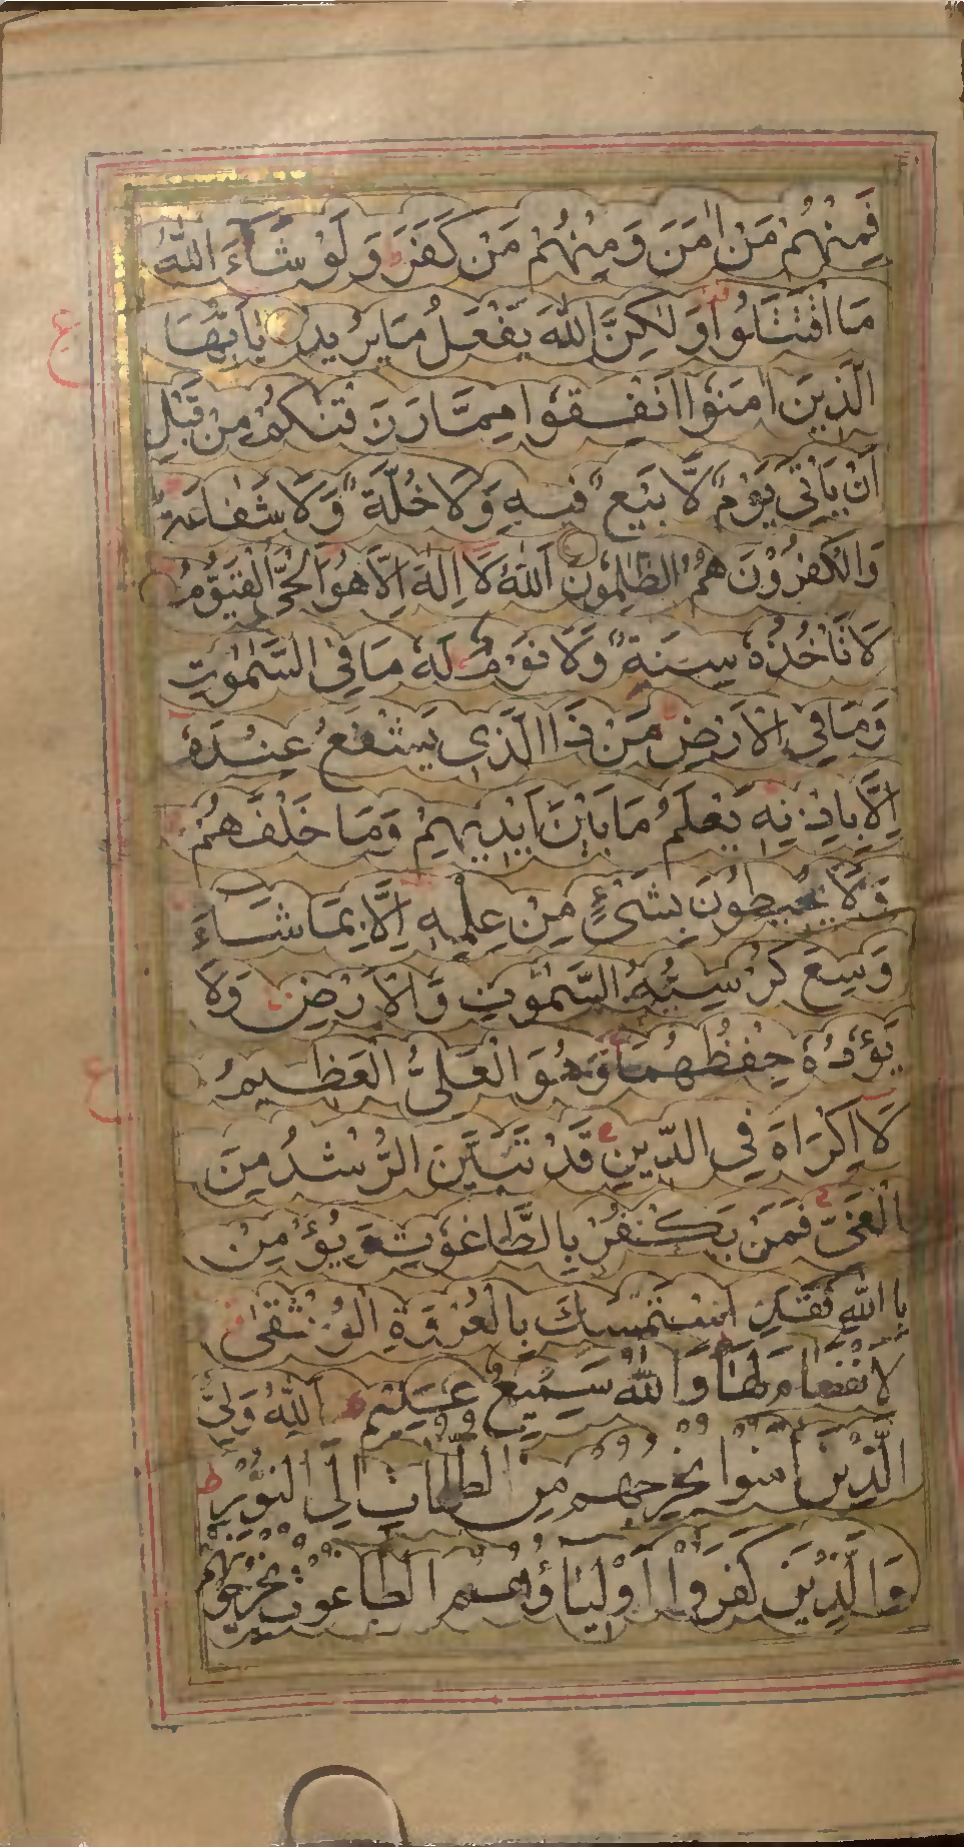 فَمِنْهُمْ مَنْ اٰمَنَ وَمِنْهُمْ مَنْ كَفَرَ ط وَلَوْ شَآءَ اللّٰهُ
مَا اقْتَتَلُوْا وَلٰكِنَّ اللّٰهَ يَفْعَلُ مَا يُرِيدُ يٰاَيُّهَا
ع
الَّذِينَ اٰمَنُوْا اَنْفِقُوْا مِمَّا رَزَقْنٰكُمْ مِنْ قَبْلِ
اَنْ يَأْتِيَ يَوْمٌ لَّا بَيْعٌ فِيهِ وَلَا خُلَّةٌ وَلَا شَفَاعَةٌ
وَالْكٰفِرُوْنَ هُمُ الظّٰلِمُونَ اَللّٰهُ لَا اِلٰهَ اِلَّا هُوَ اَلْحَىُّ الْقَيُّوْمُ
لَا تَأْخُذُهٗ سِنَةٌ وَلَا نَوْمٌ لَهٗ مَا فِي السَّمٰوٰتِ
وَمَا فِي الْاَرْضِ مَنْ ذَا الَّذِي يَشْفَعُ عِنْدَهٗ
اِلَّا بِاِذْنِهٖ يَعْلَمُ مَا بَيْنَ اَيْدِيهِمْ وَمَا خَلْفَهُمْ
وَلَا يُحِيطُونَ بِشَىْءٍ مِنْ عِلْمِهٖ اِلَّا بِمَا شَآءَ
وَسِعَ كُرْسِيُّهُ السَّمٰوٰتِ وَالْاَرْضَ وَلَا
يَؤُدُهٗ حِفْظُهُمَا وَهُوَ الْعَلِىُّ الْعَظِيمُ
ع
لَا اِكْرَاهَ فِي الدِّينِ قَدْ تَبَيَّنَ الرُّشْدُ مِنَ
الْغَىِّ فَمَنْ يَكْفُرْ بِالطَّاغُوْتِ وَيُؤْمِنْ
بِاللّٰهِ فَقَدِ اسْتَمْسَكَ بِالْعُرْوَةِ الْوُثْقٰى
لَا انْفِصَامَ لَهَا وَاللّٰهُ سَمِيعٌ عَلِيمٌ اَللّٰهُ وَلِىُّ
الَّذِيْنَ اٰمَنُوْا يُخْرِجُهُمْ مِنَ الظُّلُمٰاتِ اِلَى النُّوْرِ ط
وَالَّذِيْنَ كَفَرُوْا اَوْلِيَاؤُهُمُ الطَّاغُوْتُ يُخْرِجُوْنَهُمْ